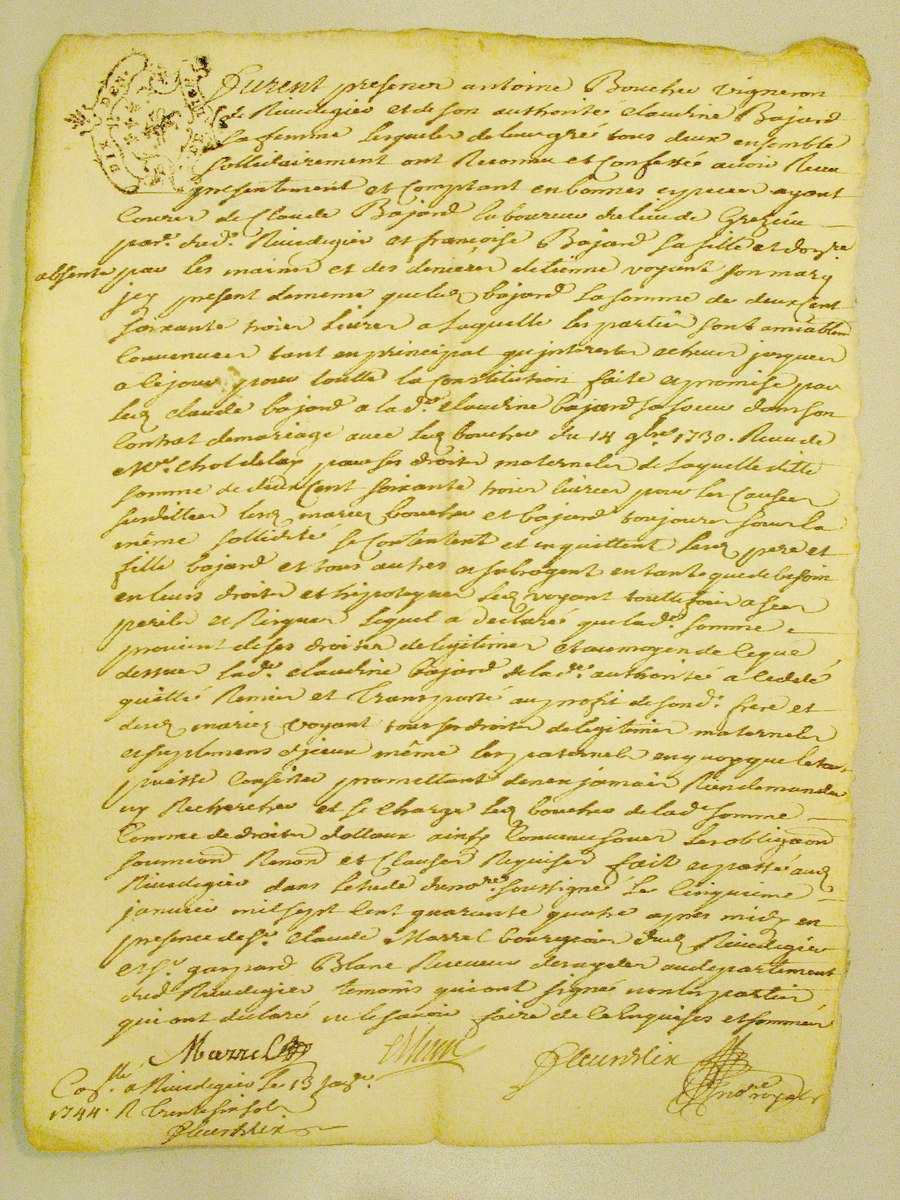 DIX DEN.
furent presences antoine Boucher vigneron
de Rivedegier et de son authorité claudine Bajard
sa femme lesqueles de leur gré tous deux ensemble
sollidairement ont Reconnu et Confessé avoir Receu
presentement et Comptant en bonnes especes ayant
Cours de Claude Bajard laboureur du lieu de
par. dud. Rivedegier et françoise Bajard sa fille et
absente par les mains et des deniers detienne voyant son mary
icy present de meme que led bajard la somme de deux Cent
soixante trois livres a laquelle les parties sont amiablem
Convenues tant en principal qu'interests jusques
a ce jour pour toutte la Constitution faite et promise par
led claude bajard a lad. claudine bajard sa soeur dans son
Contrat de mariage avec led boucher du 14 9bre 1730. Receu
Me. Choldelas pour ses droits maternels de laquelle ditte
somme de deux Cent soixante trois livres pour les Causes
susdittes lesd maries boucher et bajard toujours sous la
même sollidité se Contentent et en quittent lesd pere et
fille bajard et tous autres et subrogent en tant que de besoin
en leurs droits et hipoteques led voyant touttefois a ses
perils et Risques lequel a declaré que lad. somme
provient de ses droits de legitimes et au moyen de ce que
dessus lad. claudine bajard de lad. authorité a cedé
quitté Remis et Transporté au profit de sond. frere et
desd maries voyant tous ses droits de legitimes maternels
et suplemens d'iceux même les paternels en quoy que le tout
puisse Consister promettant de n'en jamais Rien demander
ny Rechercher et se Charge led boucher de lad somme
Comme de droits dottaux ainsy Convenu sous les obligaon
soumiçons Renon et Clauses Requises fait et passé aud
Rivedegier dans letude du no.re soussigné le Cinquieme
janvier mil sept Cent quarante quatre apres midy en
presence de sr. Claude Marrel bourgeois dud Rivedegier
et sr. gaspard Blanc Receveur des aydes au departement
dud. Rivedegier temoins qui ont signé non les parties
qui ont declaré ne le savoir faire de ce Enquises et sommés
Marrel
Blanc
fleurdelix
no.re royal
Con.llé a Rivedegier le 13 janv.
1744. R Trente six sols
fleurdelix